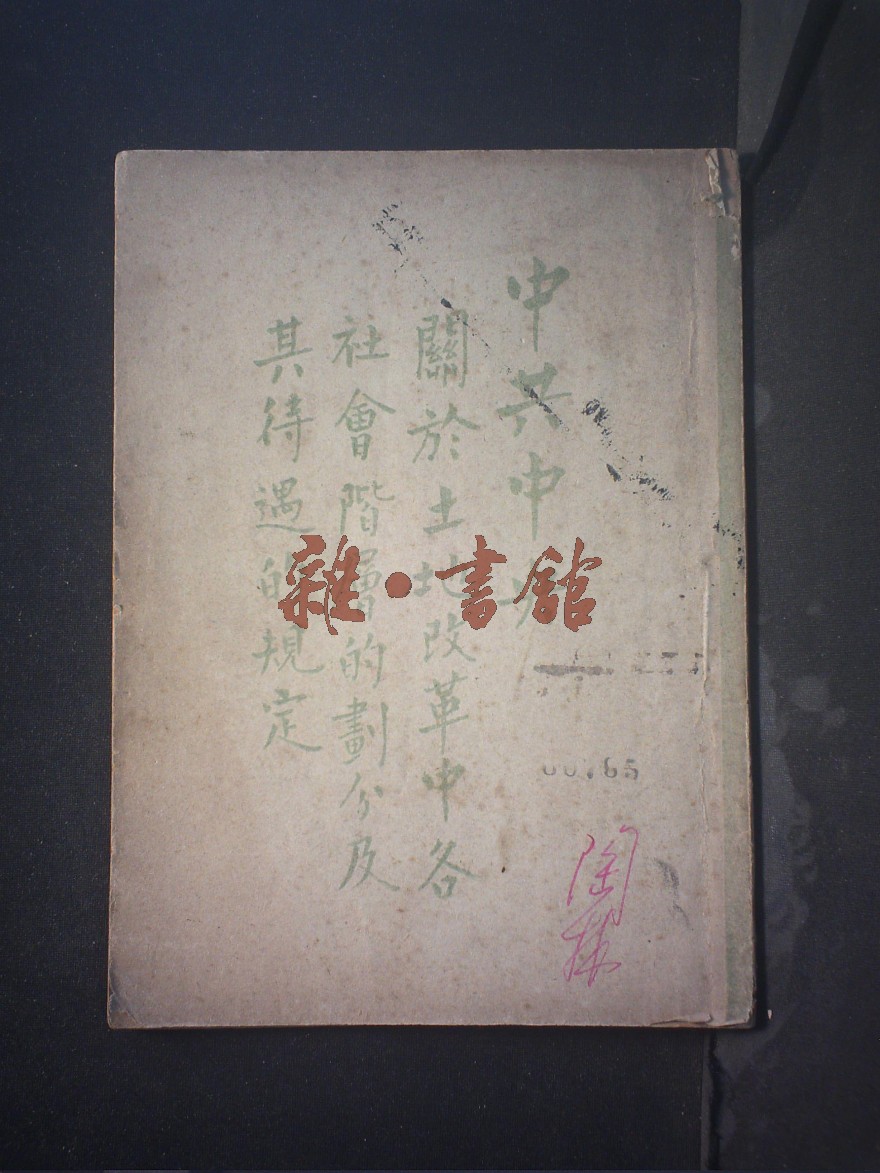 中共中央
關於土地改革中各
社會階層的劃分及
其待遇的規定
雜·書館
陶